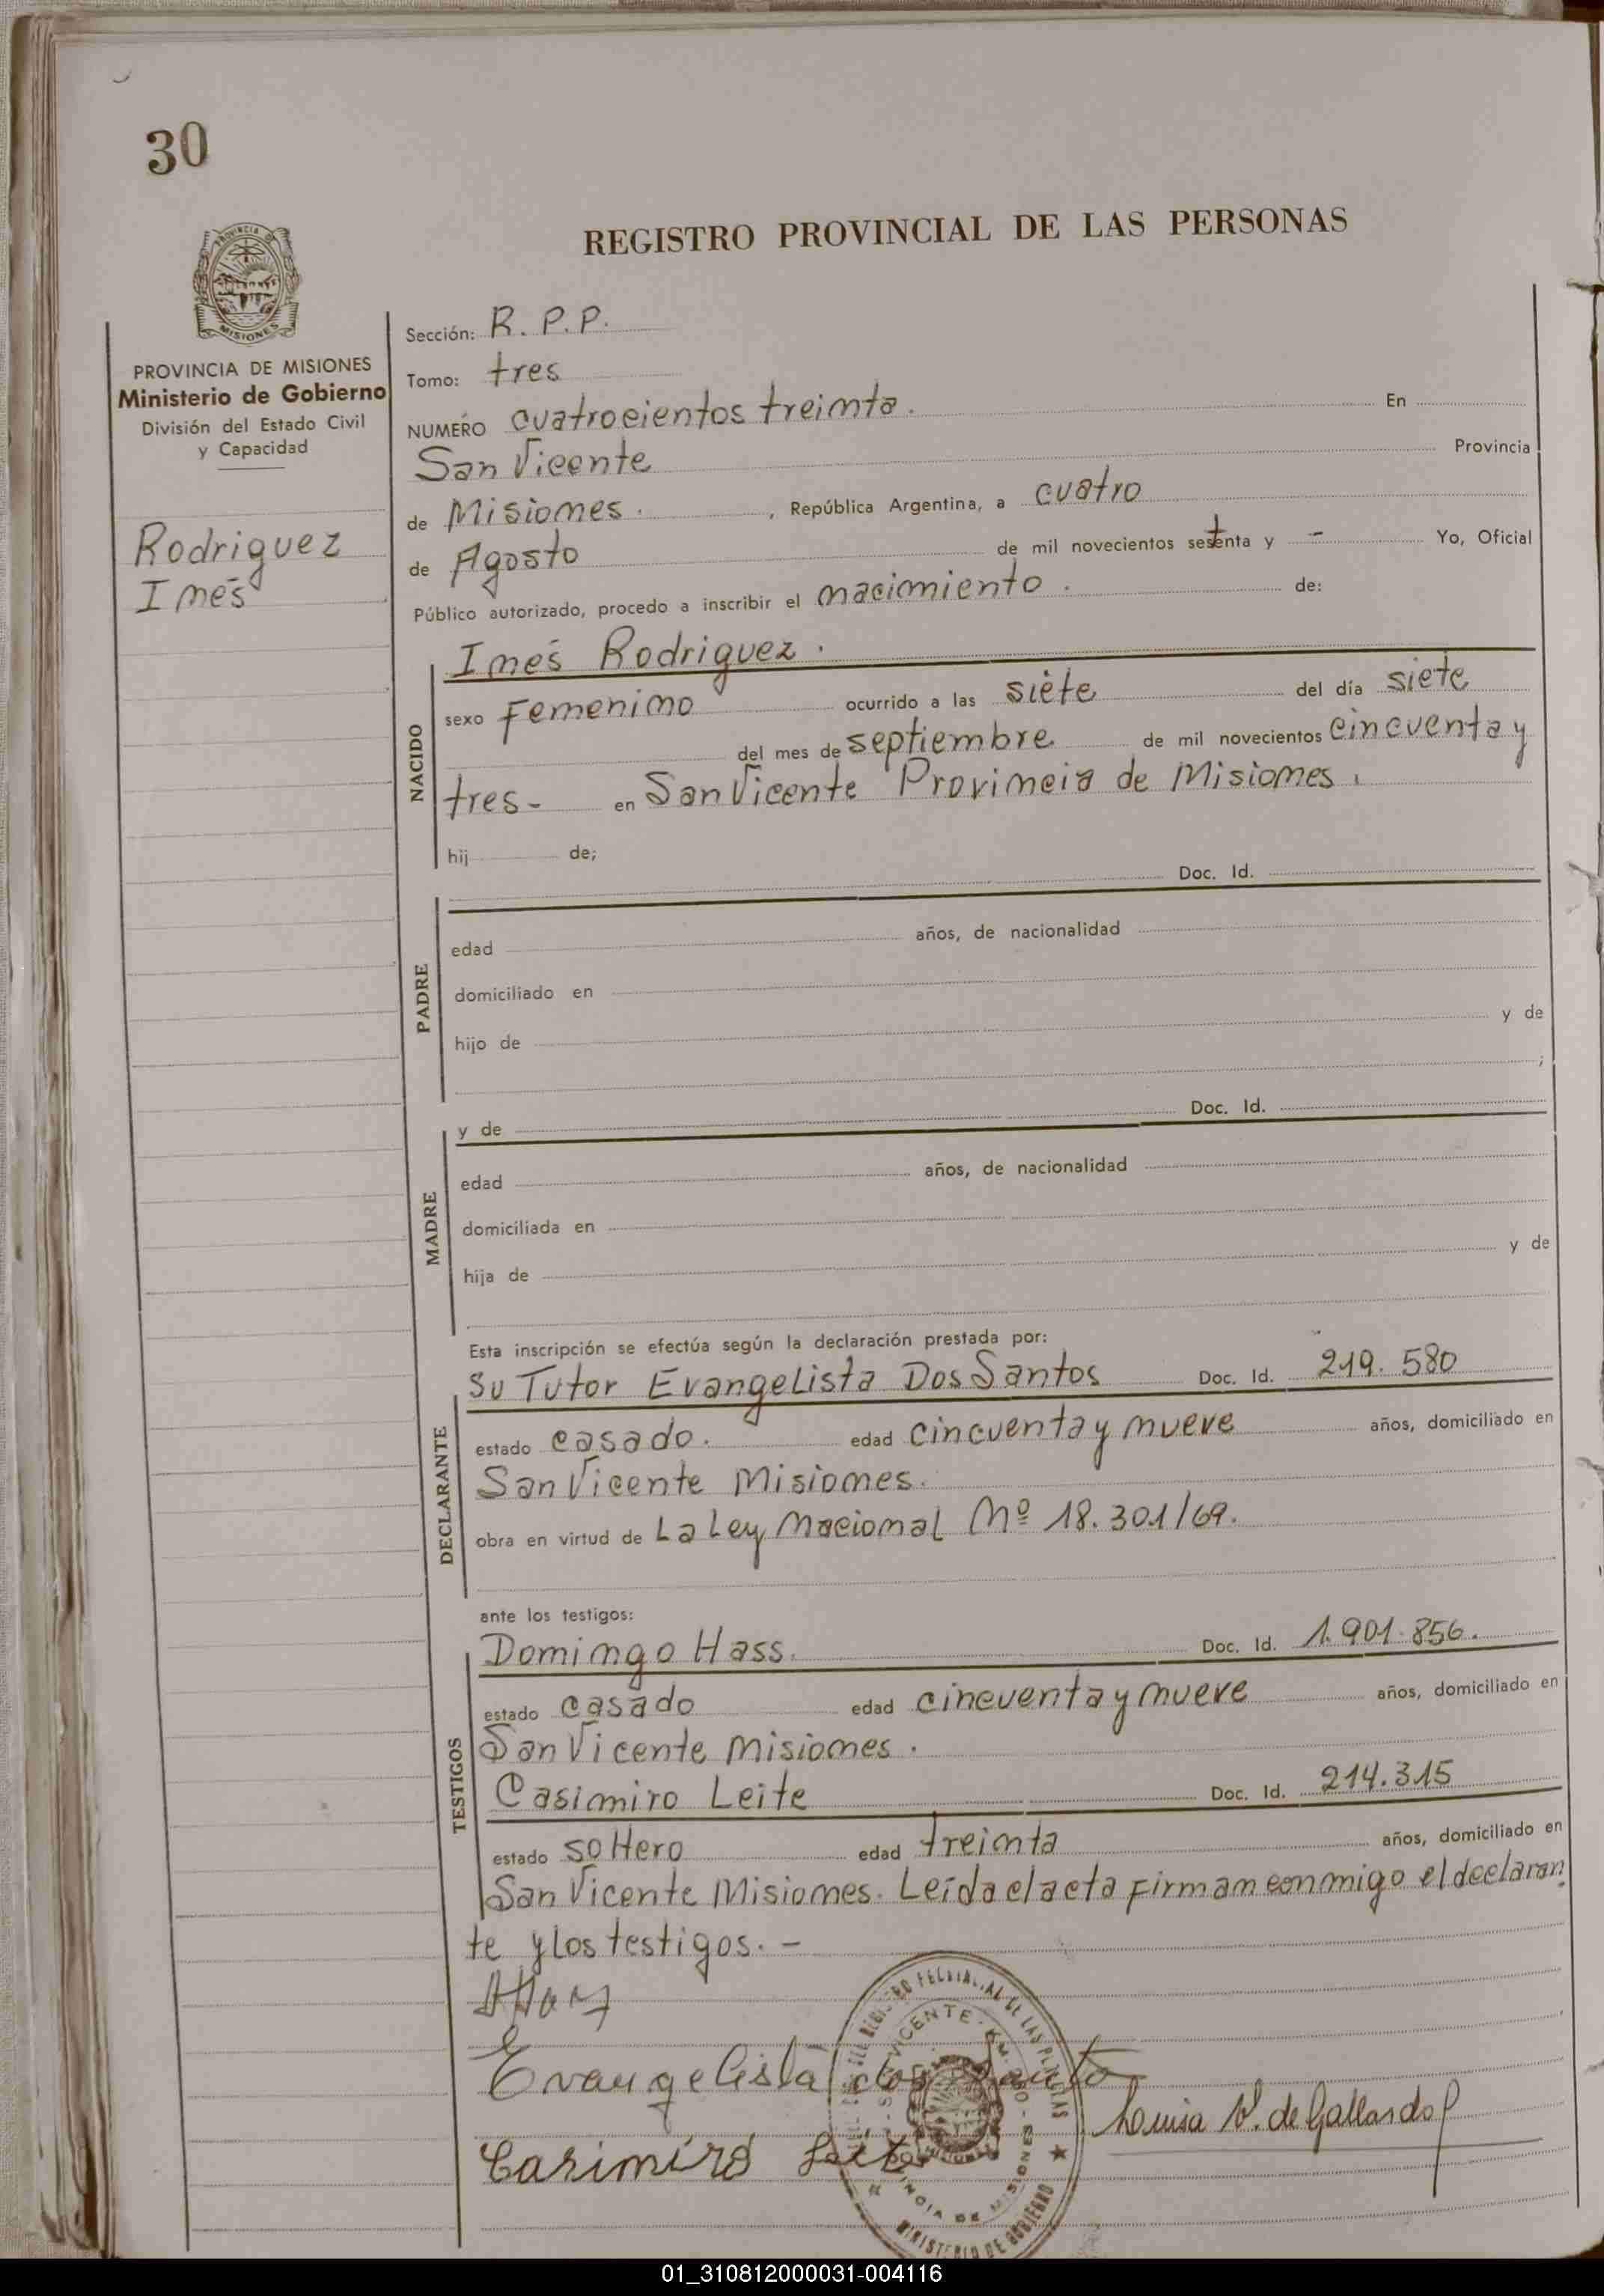 30
REGISTRO PROVINCIAL DE LAS PERSONAS
PROVINCIA DE
MISIONES
PROVINCIA DE MISIONES
Ministerio de Gobierno
División del Estado Civil
y Capacidad
Rodriguez
Inés
Sección: R. P. P.
Tomo: tres
NUMERO cuatrocientos treinta. En
San Vicente Provincia
de Misiones. , República Argentina, a cuatro
de Agosto de mil novecientos setenta y - Yo, Oficial
Público autorizado, procedo a inscribir el nacimiento. de:
NACIDO
Inés Rodriguez.
sexo Femenino ocurrido a las siete del día siete
del mes de septiembre de mil novecientos cincuenta y
tres- en San Vicente Provincia de Misiones.
hij de;
PADRE
Doc. Id.
edad años, de nacionalidad
domiciliado en
hijo de y de
;
MADRE
y de Doc. Id.
edad años, de nacionalidad
domiciliada en
hija de y de
Esta inscripción se efectúa según la declaración prestada por:
DECLARANTE
Su Tutor Evangelista Dos Santos Doc. Id. 219.580
estado casado. edad cincuenta y nueve años, domiciliado en
San Vicente Misiones.
obra en virtud de La Ley Nacional Nº 18.301/69.
ante los testigos:
TESTIGOS
Domingo Hass. Doc. Id. 1.901.856.
estado casado edad cincuenta y nueve años, domiciliado en
San Vicente Misiones.
Casimiro Leite Doc. Id. 214.315
estado soltero edad treinta años, domiciliado en
San Vicente Misiones. Leída el acta firman conmigo el declaran
te y los testigos. -
Evangelista dos Santo
Luisa V. de Gallardo
Casimiro Leite
VICENTE - KM.
PROVINCIA DE MISIONES
MINISTERIO DE GOBIERNO
01_310812000031-004116